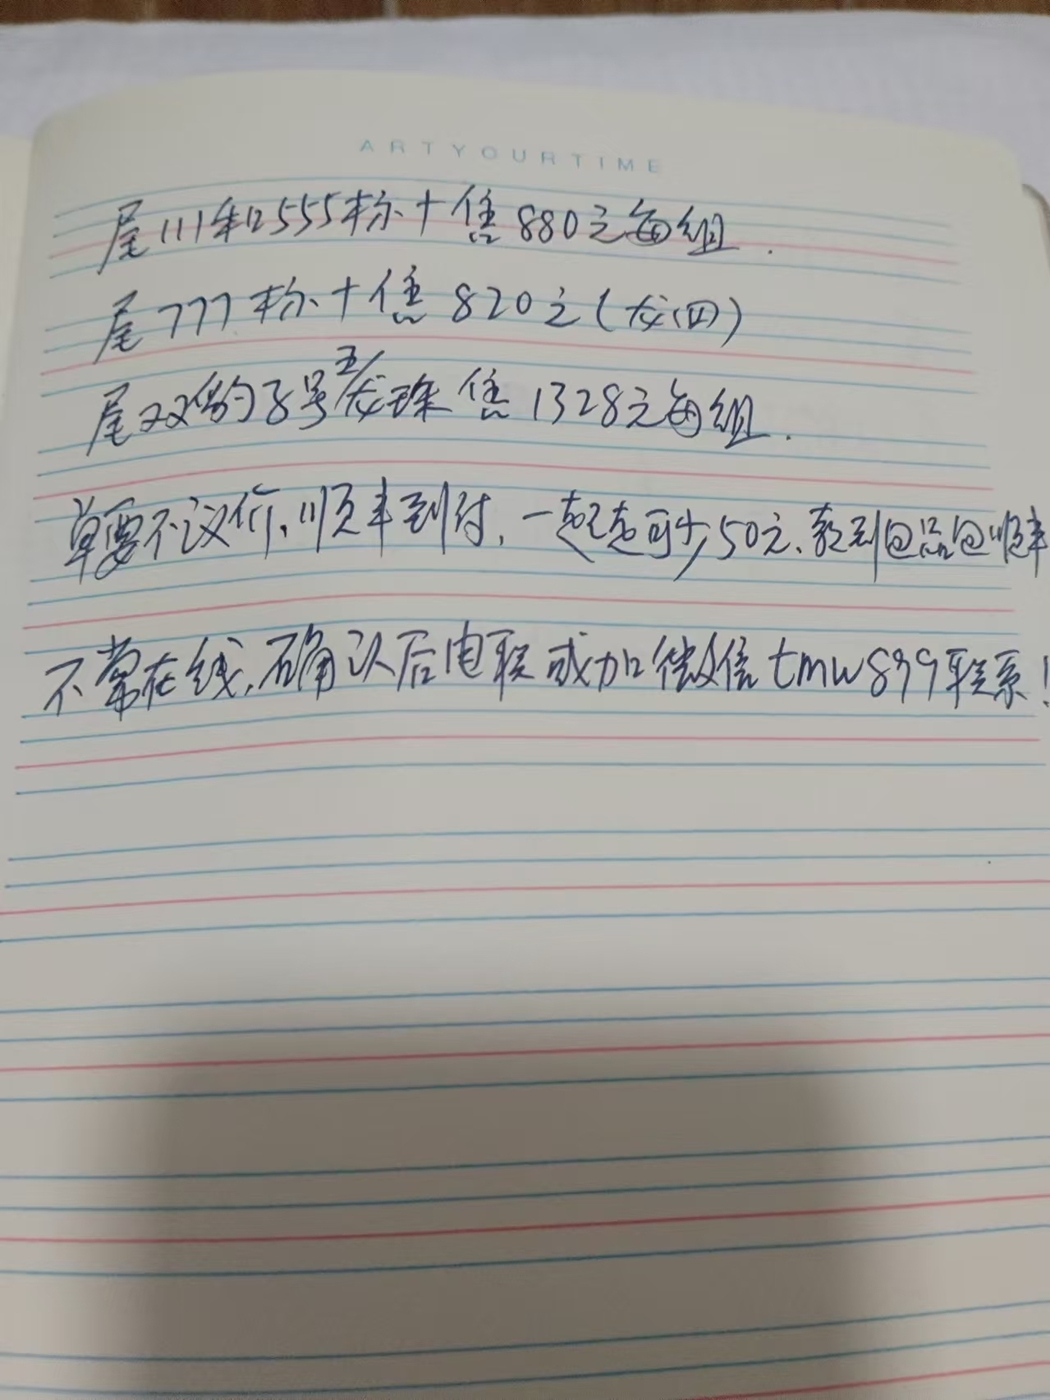 ARTYOURTIME
尾111和555标十售880元每组.
尾777标十售820元(龙四)
尾双豹子号五龙珠售1328元每组.
单要不议价、顺丰到付,一起走可少50元、款到包品包顺丰
不常在线,确认后电联或加微信tmw899联系!